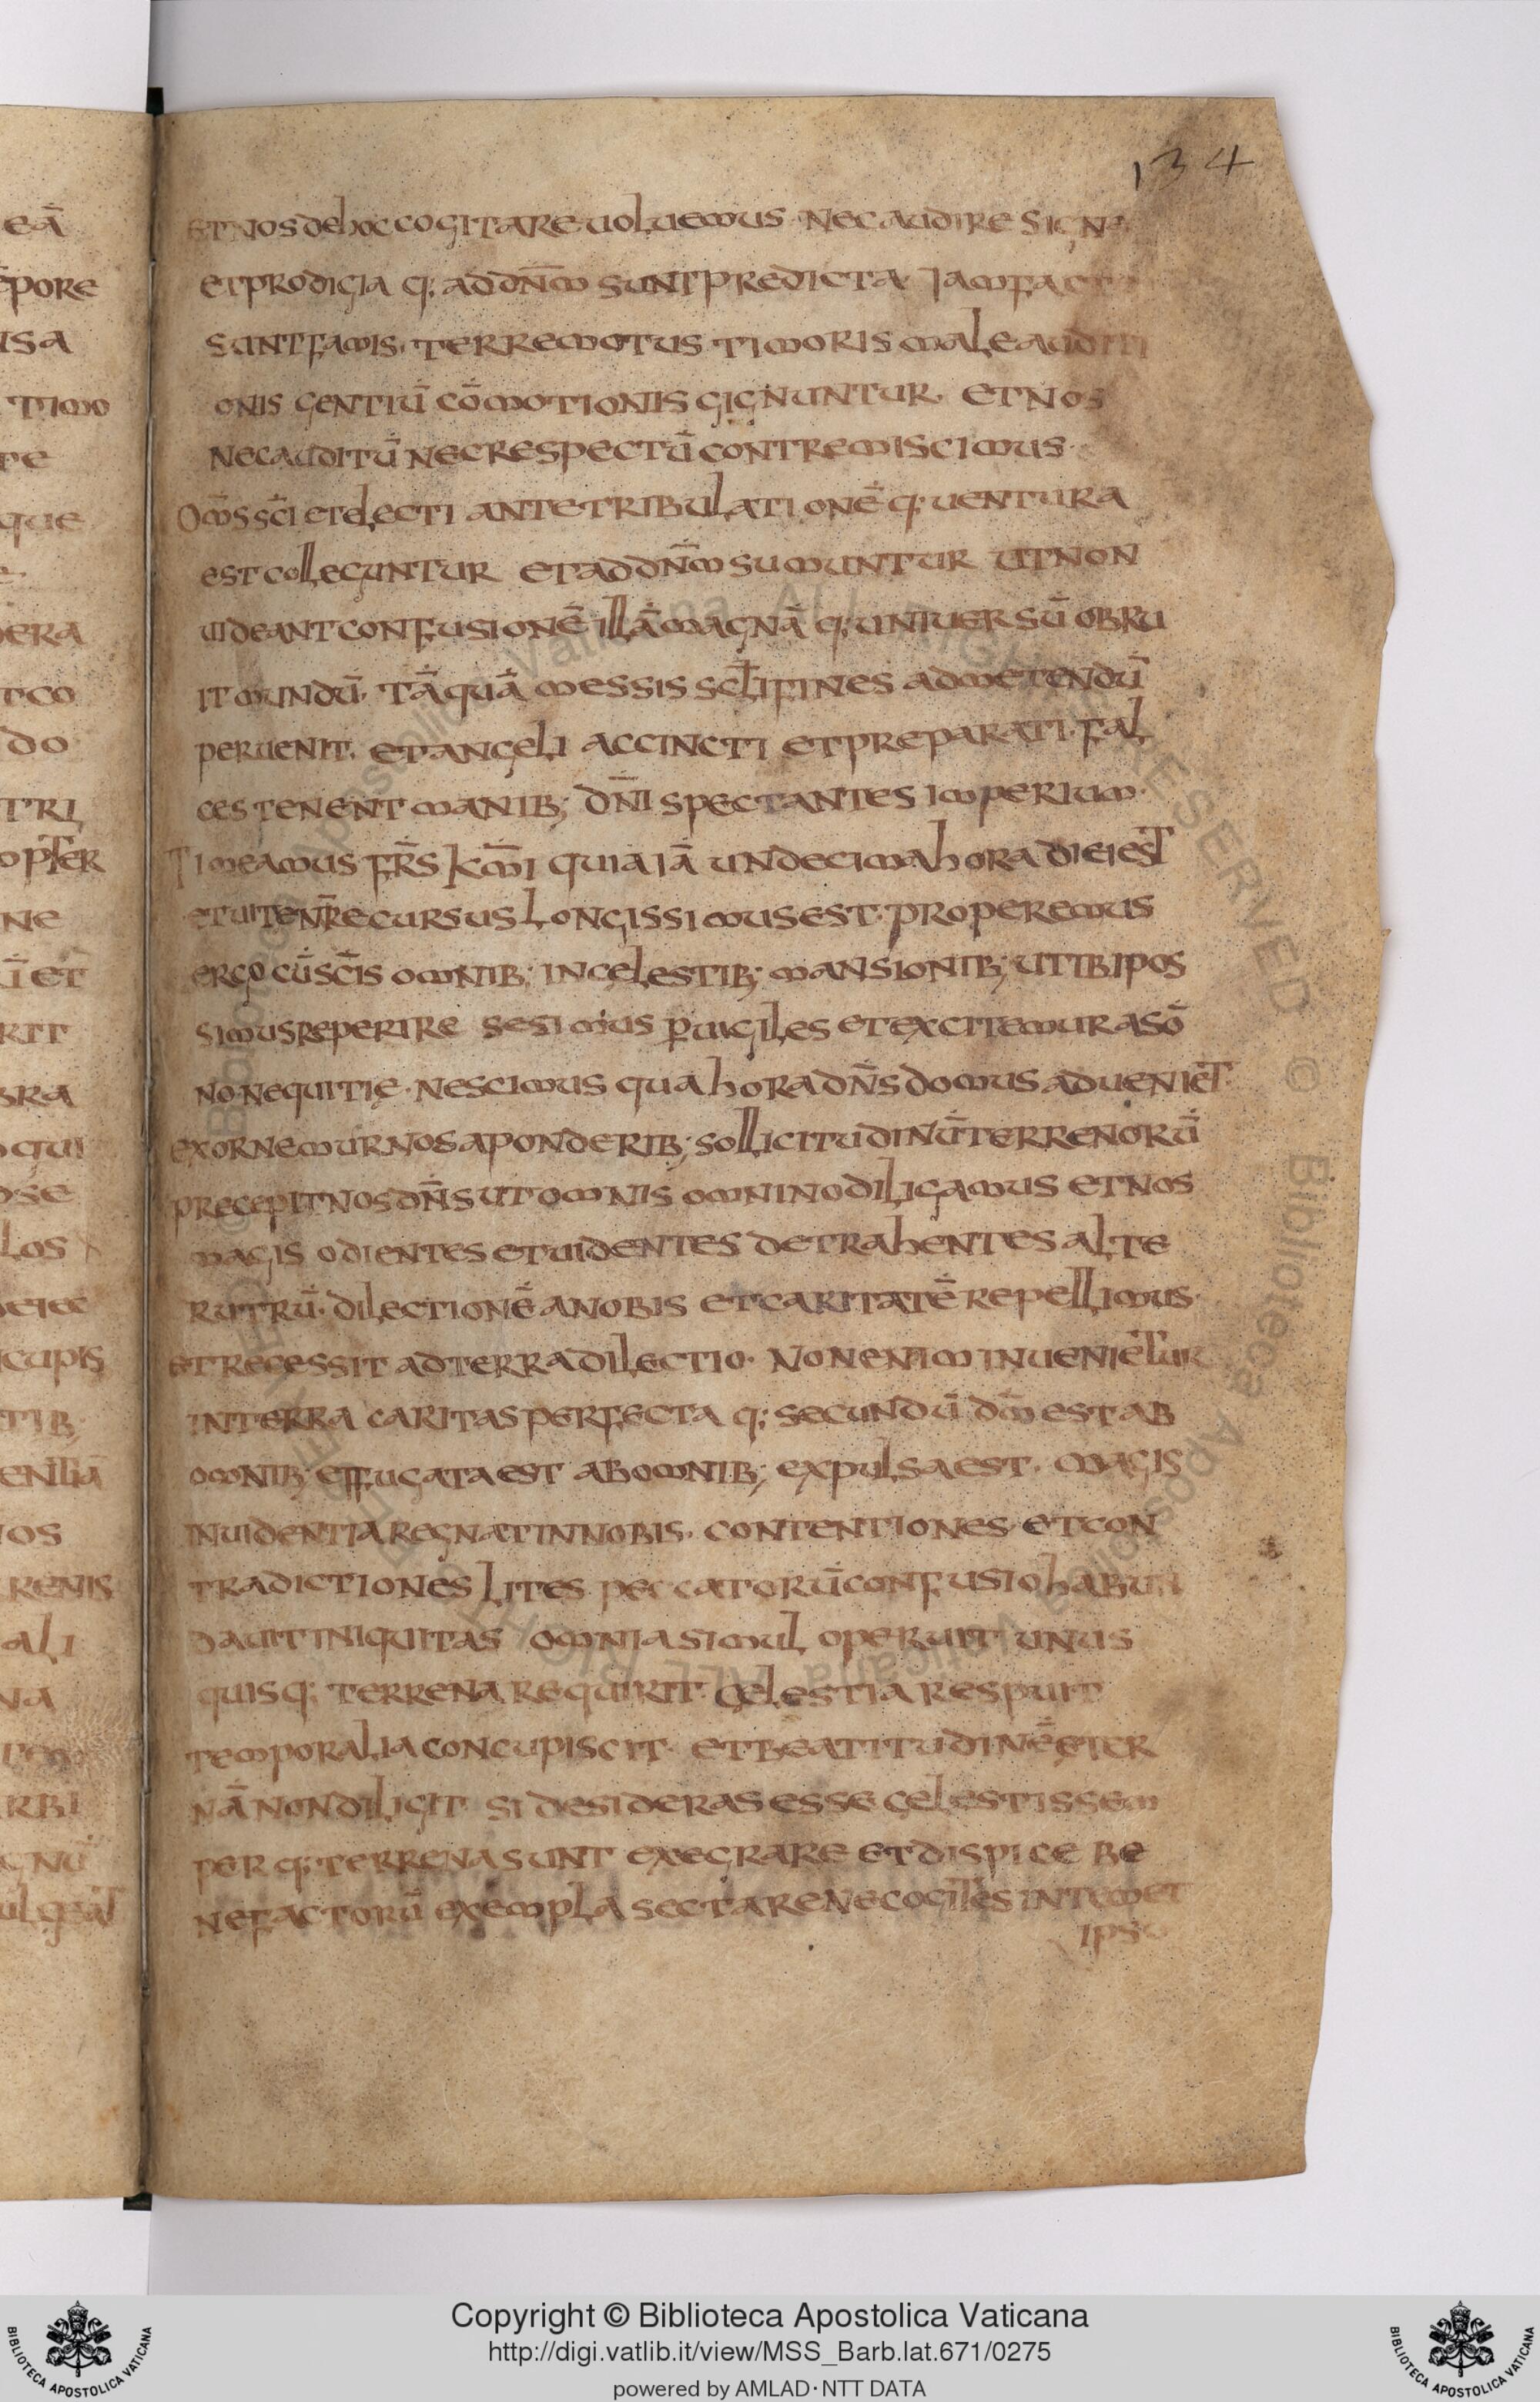 134
et nos de hoc cogitare voluemus · nec audire signa
et prodigia q; ad dn̄m sunt predicta · Iam facta
sunt famis, terremotus timoris male auditi
onis gentiū cōmotionis gignuntur · et nos
nec auditū nec respectū contremiscimus ·
Om̄s sc̄i et electi ante tribulationē q; uentura
est colleguntur et ad dn̄m sumuntur ut non
uideant confusionē illā magnā q; uniuersū obru
it mundū · tāquā messis scl̄i fines ad metendū
peruenit · et angeli accincti et preparati · fal
ces tenent manib; dn̄i spectantes imperium ·
Timeamus fr̄s km̄i quia iā undecima hora diei est
et uite nr̄e cursus longissimus est · properemus
ergo cū sc̄is omnib; in celestib; mansionib; ut ibi pos
simus reperire sesimus puigiles et excitemur a sō
no nequitię · nescimus qua hora dn̄s domus adueniet ·
exornemur nos a ponderib; sollicitudinū terrenorū
precepit nos dn̄s ut omnis omnino diligamus et nos
magis odientes et uidentes detrahentes alte
rutrū · dilectionē a nobis et caritatē repellimus ·
et recessit ad terra dilectio · Non enim inuenietur
in terra caritas perfecta q; secundū dm̄ est ab
omnib; effugata est ab omnib; expulsa est · magis
inuidentia regnat in nobis · contentiones et con
tradictiones lites peccatorū confusio habun
dauit iniquitas omnia simul operuit unus
quisq; terrena requirit · cęlestia respuit
temporalia concupiscit · et beatitudinē ęter
nā non diligit si desideras esse cęlestis sem
per q; terrena sunt exegrare et dispice be
nefactorū exempla sectare ne cogites in temet
ipso
Copyright © Biblioteca Apostolica Vaticana
http://digi.vatlib.it/view/MSS_Barb.lat.671/0275
powered by AMLAD·NTT DATA
BIBLIOTECA APOSTOLICA VATICANA
BIBLIOTECA APOSTOLICA VATICANA